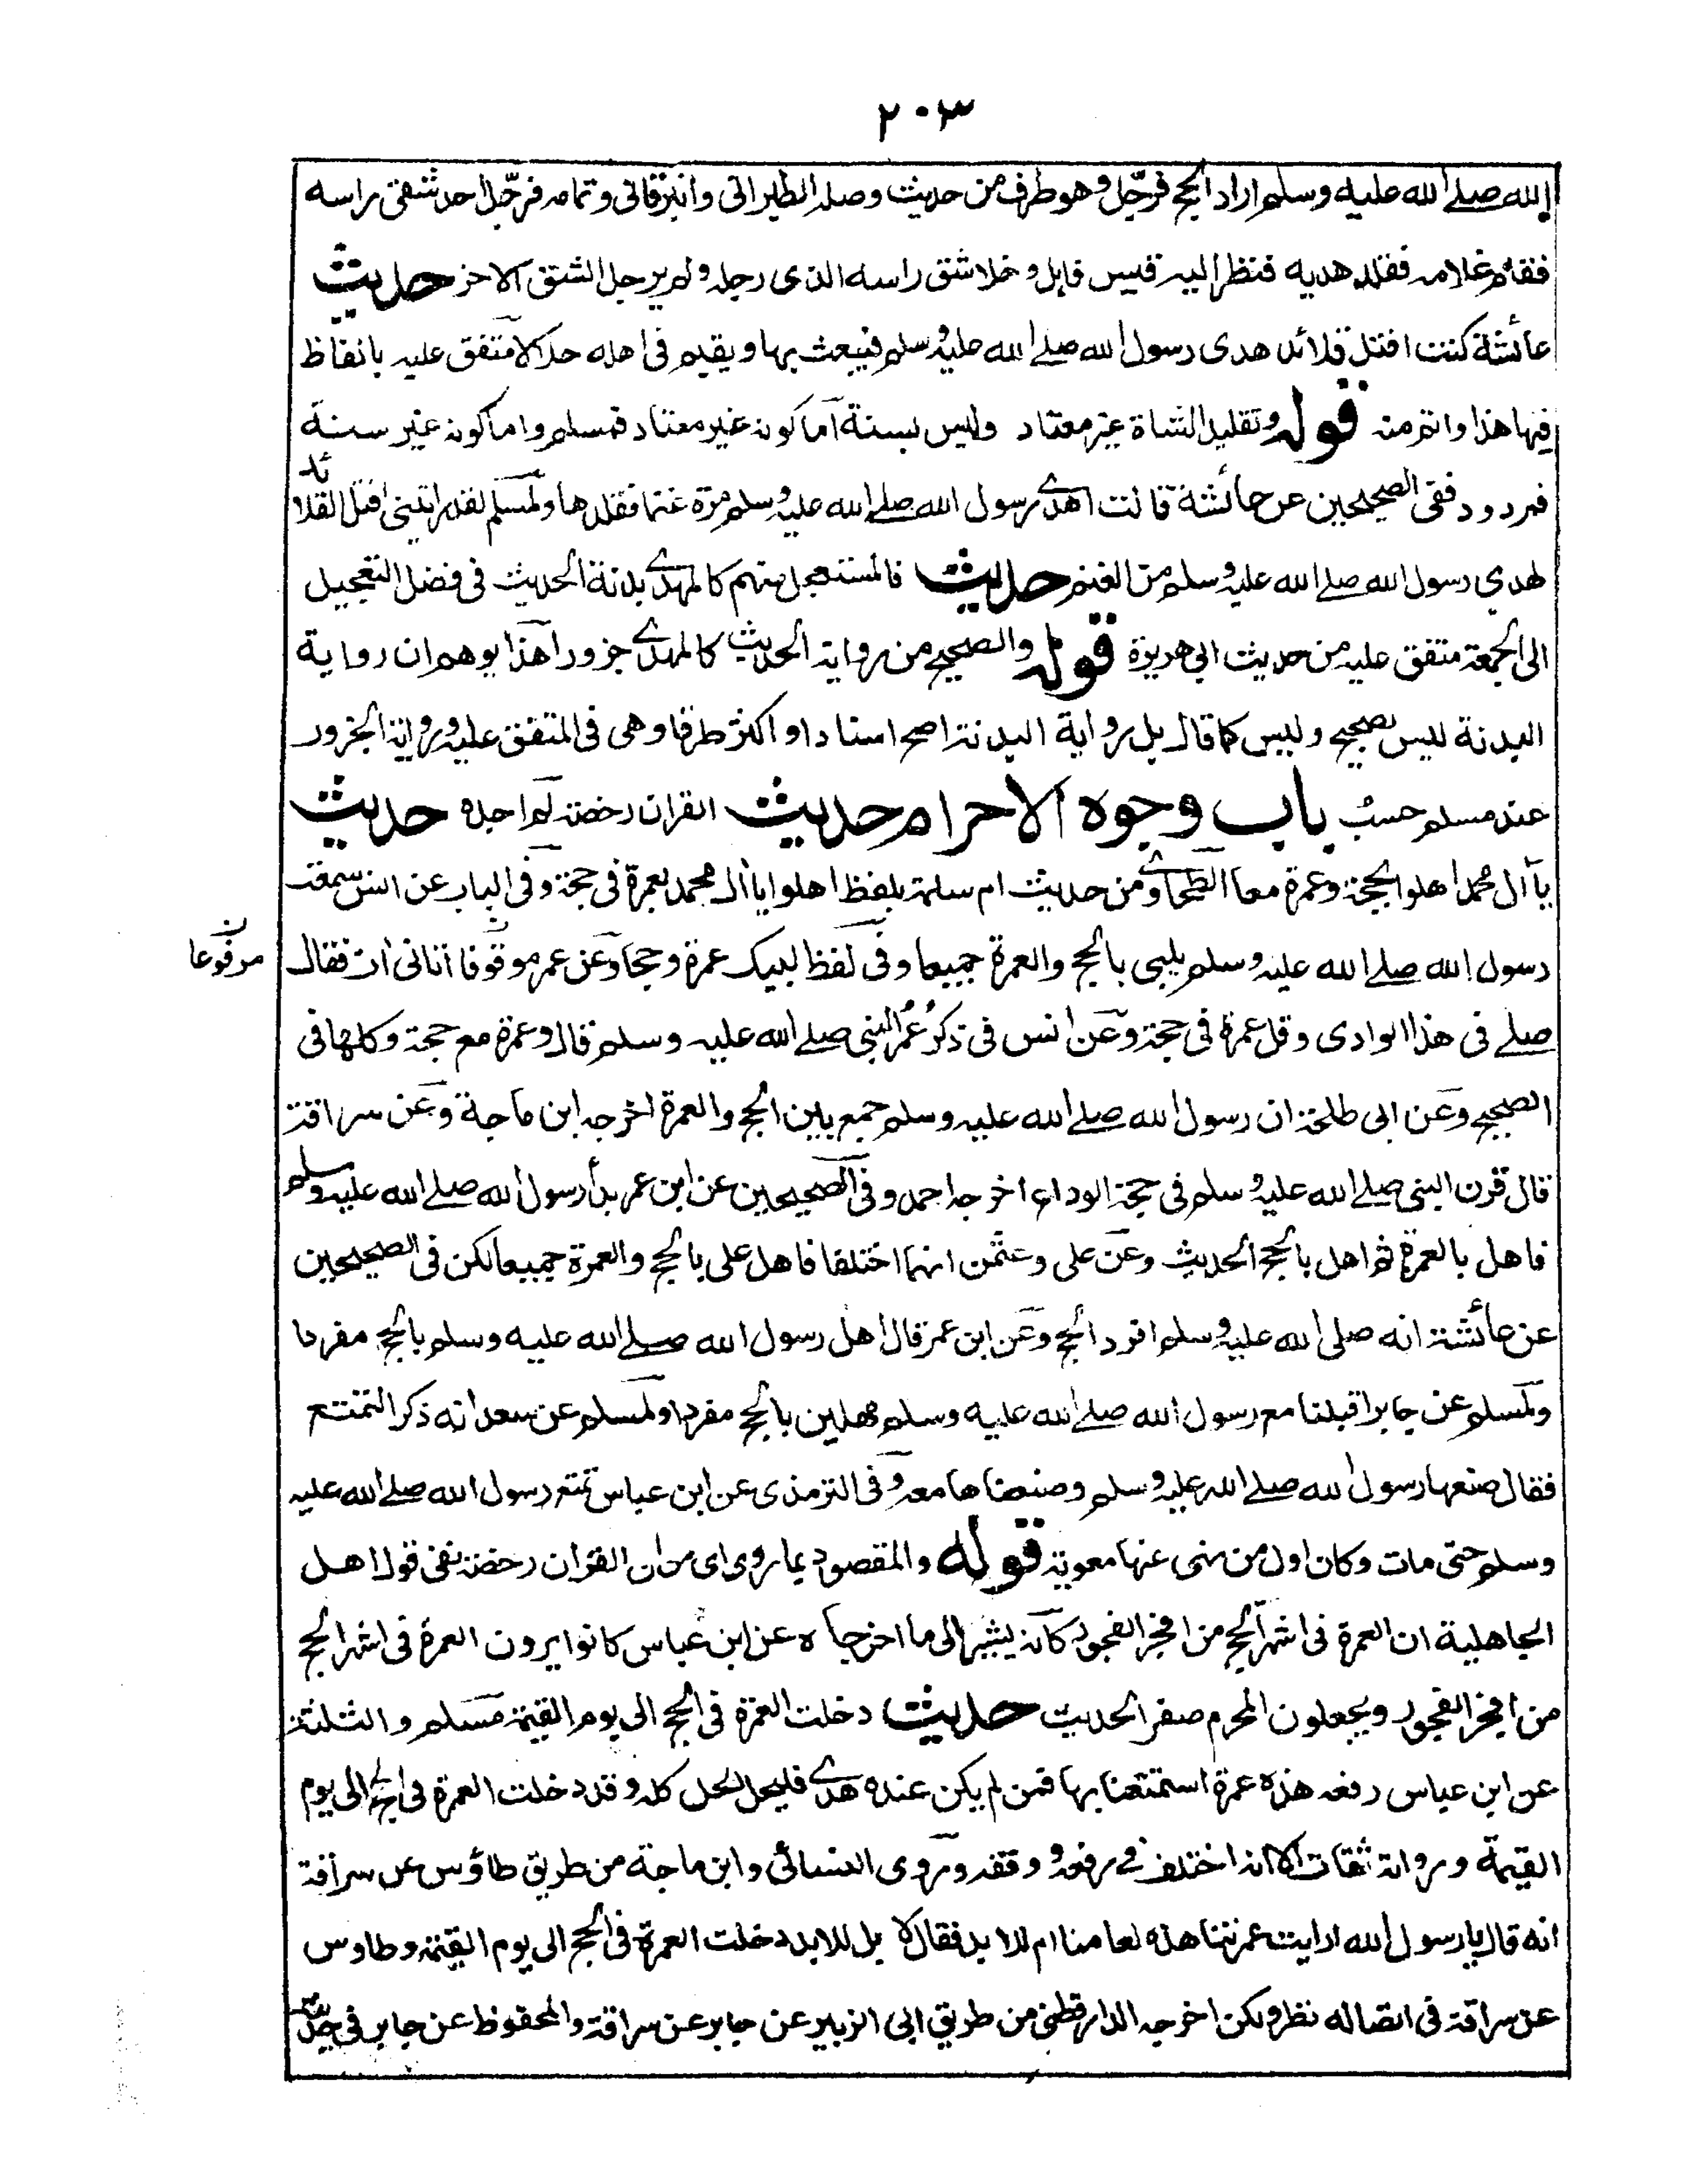 ٢٠٣
الله صلے الله عليه وسلم اراد الحج فرجّل وهو طرف من حديث وصله الطبرانى والبرقانى وتمامه فرجّل احد شقى راسه
فقام غلامه فقلد هديه فنظر اليه قيس فاهل وخلا شق راسه الذى رجله ولم يرجل الشق الاخر حديث
عائشة كنت افتل قلائد هدى رسول الله صلے الله عليه وسلم فيبعث بها ويقيم فى اهله حلالا متفق عليه بالفاظ
فيها هذا واتم منه قوله وتقليد الشاة غير معتاد وليس بسنة اما كونه غير معتاد فمسلم واما كونه غير سنة
فمردود ففى الصحيحين عن عائشة قالت اهدے رسول الله صلے الله عليه وسلم مرة غنما فقلدها ولمسلم لقد رايتنى افتل القلائد
لهدي رسول الله صلے الله عليه وسلم من الغنم حديث فالمستعجل منهم كالمهدے بدنة الحديث فى فضل التعجيل
الى الجمعة متفق عليه من حديث ابى هريرة قوله والصحيح من رواية الحديث كالمهدے جزورا هذا يوهم ان رواية
البدنة ليس بصحيح وليس كما قال بل رواية البدنة اصح اسنادا واكثر طرقا وهى فى المتفق عليه ورواية الجزور
عند مسلم حسبُ باب وجوه الاحرام حديث القران رخصة لم اجده حديث
يا آل محمد اهلوا بحجة وعمرة معا الطحاوے من حديث ام سلمة بلفظ اهلوا يا ال محمد بعمرة فى حجة وفى الباب عن انس سمعت
رسول الله صلے الله عليه وسلم يلبى بالحج والعمرة جميعا وفى لفظ لبيك عمرة وحجا وعن عمر موقوفا اتانى ات فقال
مرفوعا ن
صلے فى هذا الوادى وقل عمرة فى حجة وعن انس فى ذكر عُمَر النبى صلے الله عليه وسلم قال وعمرة مع حجة وكلها فى
الصحيح وعن ابى طلحة ان رسول الله صلے الله عليه وسلم جمع بين الحج والعمرة اخرجه ابن ماجة وعن سراقة
قال قرن النبى صلے الله عليه وسلم فى حجة الوداع اخرجه احمد وفى الصحيحين عن ابن عمر بدأ رسول الله صلے الله عليه وسلم
فاهل بالعمرة ثم اهل بالحج الحديث وعن على وعثمن انهما اختلفا فاهل على بالحج والعمرة جميعا لكن فى الصحيحين
عن عائشة انه صلى الله عليه وسلم افرد الحج وعن ابن عمر قال اهل رسول الله صلے الله عليه وسلم بالحج مفردا
ولمسلم عن جابر اقبلنا مع رسول الله صلے الله عليه وسلم مهلين بالحج مفردا ولمسلم عن سعد انه ذكر التمتع
فقال صنعها رسول الله صلے الله عليه وسلم وصنعناها معه وفى الترمذى عن ابن عباس تمتع رسول الله صلے الله عليه
وسلم حتى مات وكان اول من نهى عنها معوية قوله والمقصود بما روى اى من ان القران رخصة نفى قول اهل
الجاهلية ان العمرة فى اشهر الحج من افجر الفجور كانه يشير الى ما اخرجاه عن ابن عباس كانوا يرون العمرة فى اشهر الحج
من افجر الفجور ويجعلون المحرم صفر الحديث حديث دخلت العمرة فى الحج الى يوم القيمة مسلم والثلثة
عن ابن عباس رفعه هذه عمرة استمتعنا بها فمن لم يكن عنده هدے فليحل الحل كله وقد دخلت العمرة فى الحج الى يوم
القيمة ورواته ثقات الا انه اختلف فے رفعه ووقفه وروى النسائى وابن ماجة من طريق طاؤس عن سراقة
انه قال يا رسول الله ارايت عمرتنا هذه لعامنا ام للابد فقال لا بل للابد دخلت العمرة فى الحج الى يوم القيمة وطاوس
عن سراقة فى اتصاله نظر ولكن اخرجه الدارقطنى من طريق ابى الزبير عن جابر عن سراقة والمحفوظ عن جابر فى حديث